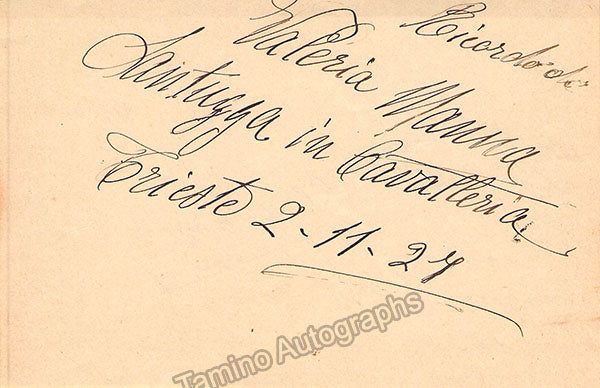 Ricordo di
Valeria Manna
Santuzza in Cavalleria
Trieste 2-11-27
Tamino Autographs